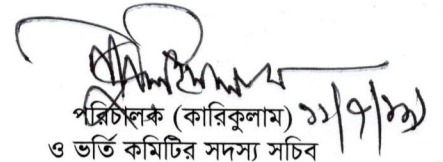 পরিচালক (কারিকুলাম)
ও ভর্তি কমিটির সদস্য সচিব